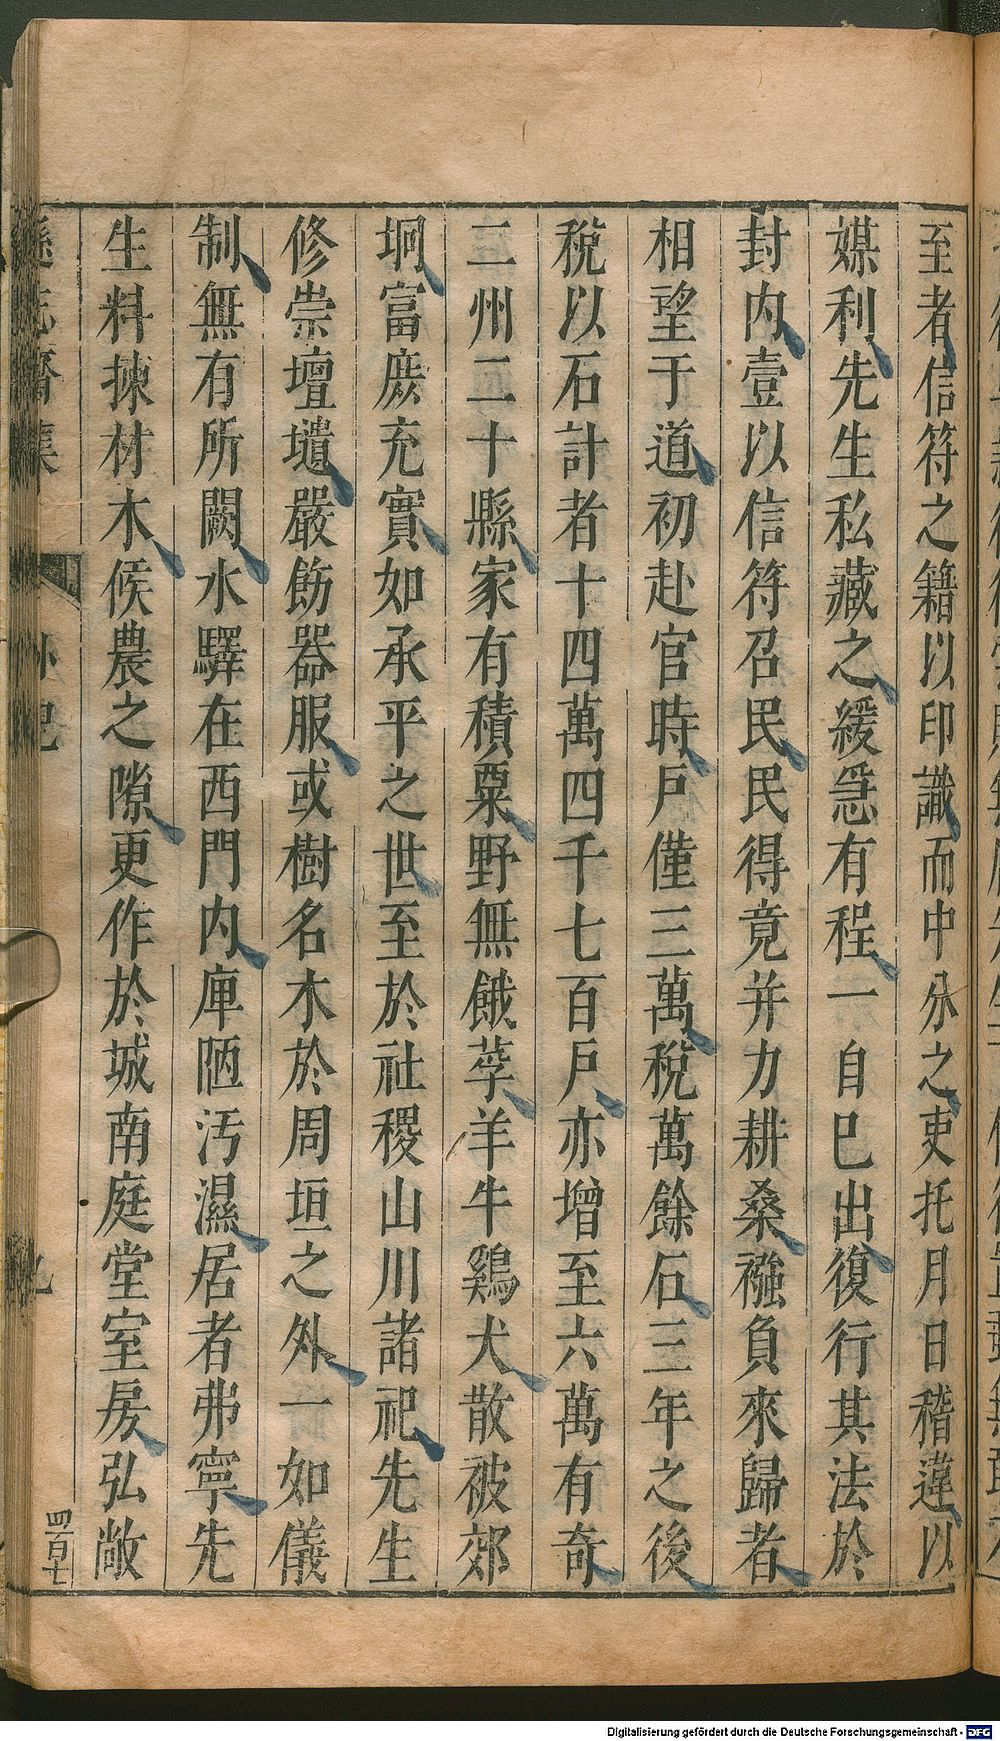 至者信符之籍以印識而中分之吏托月日稽違以
媒利先生私藏之緩急有程一自巳出復行其法於
封内壹以信符召民民得竟并力耕桑襁負來歸者
相望于道初赴官時戸僅三萬稅萬餘石三年之後
稅以石計者十四萬四千七百戸亦增至六萬有奇
二州二十縣家有積粟野無餓莩羊牛鷄犬散被郊
坰富庶充實如承平之世至於社稷山川諸祀先生
修崇壇壝嚴飭器服或樹名木於周垣之外一如儀
制無有所闕水驛在西門内庳陋汚濕居者弗寧先
生料揀材木候農之隙更作於城南庭堂室房弘敞
遜志齋集
九
四百十七
Digitalisierung gefördert durch die Deutsche Forschungsgemeinschaft - DFG